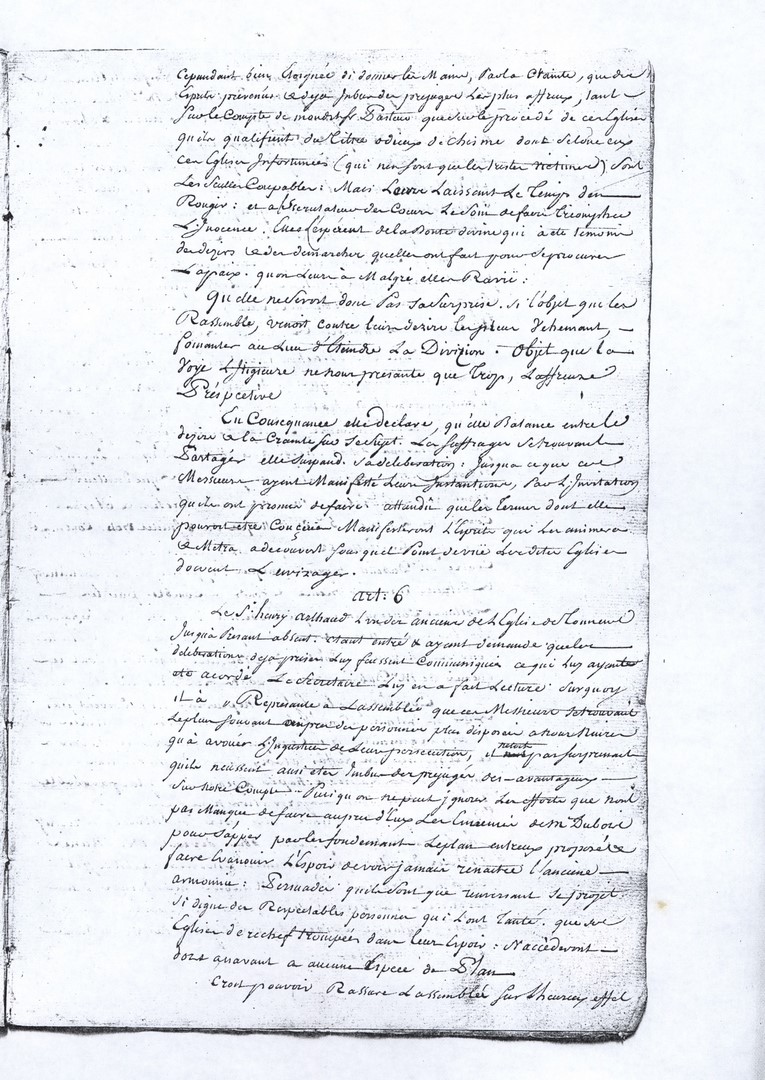 Cependant bien Eloignée di donner les Mains, Par la Crainte, que des
Esprits prevenus & deja Inbus des prejuges les plus affreux, tant
Sur le Compte de monst. les Pasteurs que sur le procédé de ces Eglises
quils qualifient du titre odieux de chisme dont selon eux
ces Eglises Infortunées (qui nen sont que les tristes victimes) sont
Les Seulles Coupables: Mais Leurs Laissant Le Temps den
Rougir: et a Scrutateur des Coeurs Le Soin de faire Triompher
L'Inocence. Elles l'esperent de la Bonté divine qui à eté temoin
des dezirs & des demarches quelles ont fait pour se procurer
La paix. quon Leurs à Malgré elles Ravie:
Qu'elle ne Seront donc Pas Sa Surprise. Si l'objet que les
Rassemble, venoit contre leurs dezirs les plus Vehemant,
fomanter au Lieu d'Eteindre La Divizion. Objet que la
Voye Litigieure ne nous presante que Trop, L'affreuse
Perspective
En Consequance elle Declare, qu'elle Balance entre le
dezire & la Crainte sur ce Sujet. Les Suffrages se trouvant
Partagés elle Suspand. Sa deliberation: Jusqua ce que ces
Messieurs ayent Manifesté Leurs Instantions, Par L'Invitation
quils ont promis de faire. attandu que les termes dont elle
pourroit etre Conçeüe Manifesteront L'Esprit qui les animera
& Metra a decouvert sous quel Point de vüe Les dites Eglises
doivent L'envizager.
art: 6
Le Sr. henry arthaud L'un des anciens de L'Eglise de
Jusqu'à Presant absent. etant entré & ayant demandé que les
deliberations deja prises Luy fussent Communiquées ce qui Luy ayant
eté acordé Le Secretaire Luy en a fait Lecture. Surquoy
il à Représanté à Lassemblée que ces Messieurs se trouvant
Le plus souvant aupres des personnes plus disposées a nous Nuire
qu'à avouer L'Injustice de Leurs persecution, il netoit pas surprenant
quils neussent ausi etés Imbus des prejugés des-avantageux
Sur notre Compte. Puis qu'on ne peut ignorer Les efforts que nont
pas Manqué de faire aupres d'Eux Les Ennemis de Mr. Dubois
pour Sapper par les fondement Le plan entreux proposé &
faire Evanouir L'Espoir de voir jamais renaitre l'anciene
armonie: Persuadés quils sont que renversant Se projet
Si digne des Respectables personnes qui L'ont Tanté. que ses
Eglises derechef trompées dans leur Espoir: N'accederont
dors enavant a aucune Espece de Plan
Croit pouvoir Rassure Lassemblée sur L'heureux effet